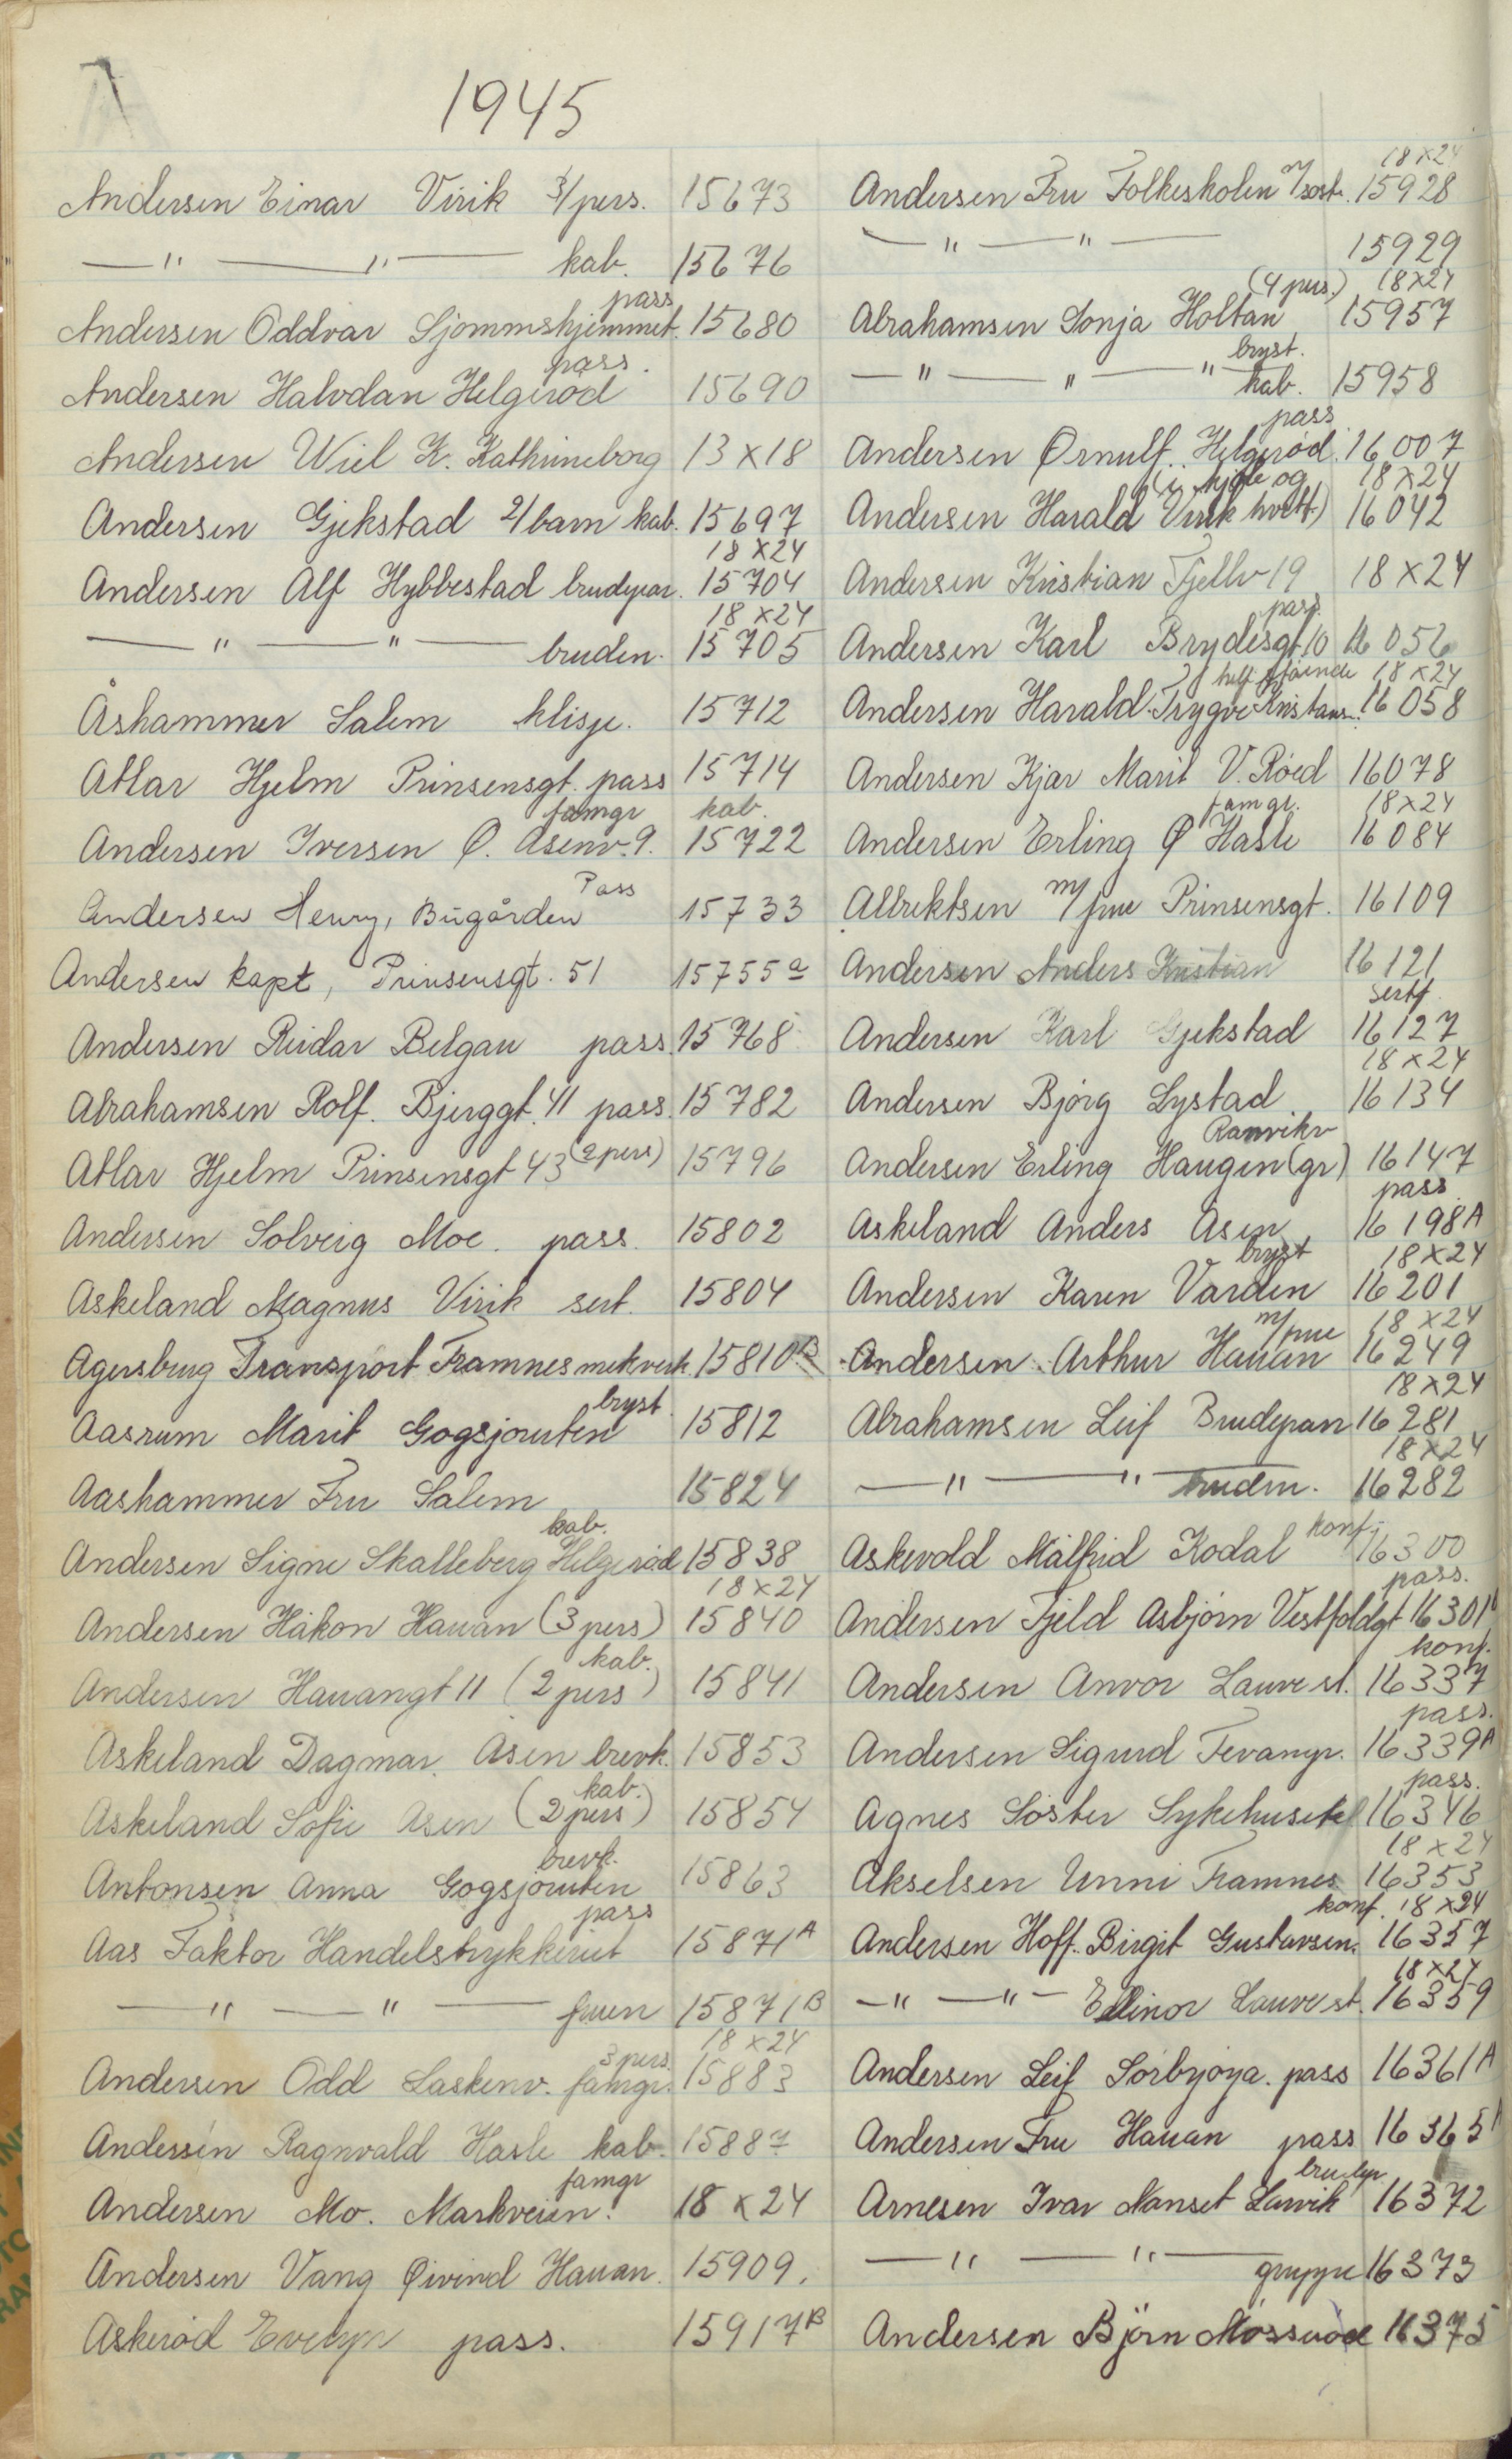 A
1945
Andersen Einar Virik 3/pers. 15673
— " — " — kab. 15676
pass
Andersen Oddvar Sjømmshjemmet. 15680
pass.
Andersen Halvdan Helgerød 15690
Andersen Wiel K. Kathrineborg 13x18
Andersen Gjekstad 2/barn kab. 15697
18x24
Andersen Alf Hybbestad brudepar. 15704
18x24
— " — " — bruden. 15705
Åshammer Salem klisje. 15712
Atlar Hjelm Prinsensgt. pass 15714
famgr kab.
Andersen Iversen Ø. Åsenv. 9. 15722
Pass
Andersen Henry, Bugården 15733
Andersen kapt, Prinsensgt. 51 15755a
Andersen Reidar Belgau pass. 15768
Abrahamsen Rolf. Bjerggt. 41 pass. 15782
Atlar Hjelm Prinsensgt 43 (2 pers) 15796
Andersen Solveig Moe. pass. 15802
Askeland Magnus Virik sert. 15804
Agersborg Transport Framnes mek verk. 15810B
bryst.
Aasrum Marit Gogsjordten 15812
Aashammer Fru Salem 15824
kab.
Andersen Signe Skalleberg Helgerød 15838
18x24
Andersen Håkon Hauan (3 pers) 15840
kab.
Andersen Hauangt 11 (2 pers) 15841
Askeland Dagmar. Åsen brevk. 15853
kab.
Askeland Sofie Åsen (2 pers) 15854
brevk.
Antonsen Anna Gogsjordten 15863
pass
Aas Faktor Handelstrykkeriet 15871A
— " — " — fruen 15871B
3 pers. 18x24
Andersen Odd Laskenv. famgr. 15883
Andersen Ragnvald Hasle kab. 15887
famgr
Andersen Mo. Markveien. 18x24
Andersen Vang Øivind Hauan. 15909.
Askerød Evelyn pass. 15917B
18x24
Andersen Fru Folkeskolen m/sost. 15928
— " — " — 15929
(4 pers.) 18x24
Abrahamsen Sonja Holtan 15957
bryst.
— " — " — " kab. 15958
pass
Andersen Ørnulf. Helgerød. 16007
(i kjole og 18x24
Andersen Harald Virik hvitt) 16042
Andersen Kristian Fjellv 19 18x24
pass.
Andersen Karl Brydesgt. 10 16056
helf. stående 18x24
Andersen Harald. Trygve Kristians. 16058
Andersen Kjær Marit V. Røed 16078
famgr. 18x24
Andersen Erling Ø Hasle 16084
Albrektsen m/frue Prinsensgt. 16109
Andersen Anders Kristian 16121
sertf.
Andersen Karl Gjekstad 16127
18x24
Andersen Bjørg Lystad. 16134
Ranvikv
Andersen Erling Haugen (gr) 16147
pass.
Askeland Anders Åsen 16198A
bryst 18x24
Andersen Karen Varden 16201
m/frue 18x24
Andersen Arthur Hauan 16249
18x24
Abrahamsen Leif Brudepar 16281
18x24
— " — " — bruden. 16282
Askevold Målfrid Kodal konf. 16300
pass.
Andersen Fjeld Asbjørn Vestfoldgt 16301
konf.
Andersen Anvor Lauvest. 16337
pass.
Andersen Sigurd Tevangr. 16339A
pass.
Agnes Søster Sykehuset 16346
18x24
Akselsen Unni Framnes 16353
konf. 18x24
Andersen Hoff. Birgit Gustavsen. 16357
18x24
— " — " — Ellinor Lauvest. 16359
Andersen Leif Sørbyøya. pass 16361A
Andersen Fru Hauan pass 16365
brudep
Arnesen Ivar Nanset Larvik 16372
— " — " — gruppe 16373
Andersen Björn Mosserød 16375